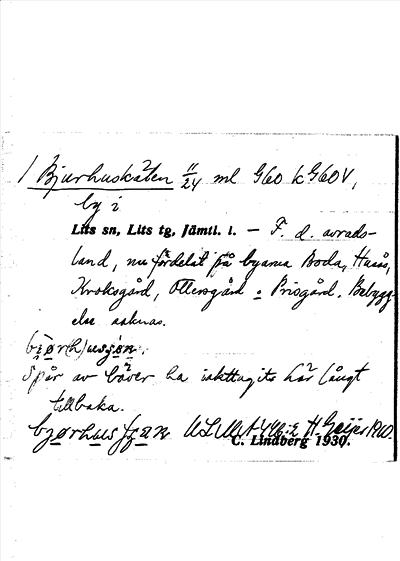 1 Bjurhuskäten 11/24 ml G60 k G60V,
by i
Lits sn, Lits tg, Jämtl. l. – F. d. avrads-
land, nu fördelat på byarna Boda, Husås,
Kroksgård, Ottersgård o Prisgård. Bebygg-
else saknas.
Spår av bäver ha iakttagits här långt
tillbaka.
bjørhusfjæn ULMA 446:2 H. Geijer 1910.
C. Lindberg 1930.